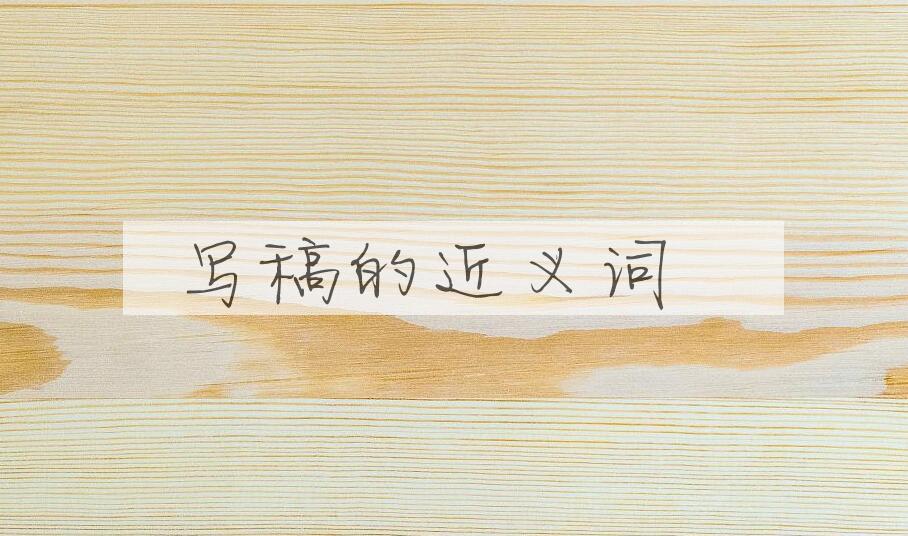 写稿的近义词